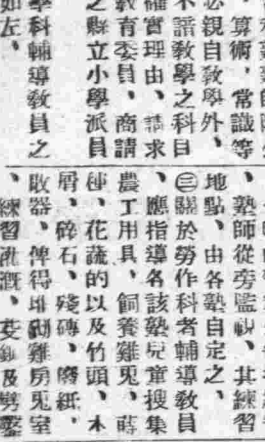 、算術，常識等
必親自敎學外，
不諳敎學之科目
確實理由、請求
敎育委員、商請
之縣立小學派員
學科輔導敎員之
如左、
、塾師從旁監視、其練習
地點、由各塾自定之、
㊂關於勞作科者輔導敎員
、應指導各該塾兒童搜集
農工用具、飼養雞兎、蒔
種、花蔬的以及竹頭、木
屑、碎石、殘磚、廢紙，
敗器、俾得堆砌雞房兎室
、練習灌漑、芟鋤及劈鑿